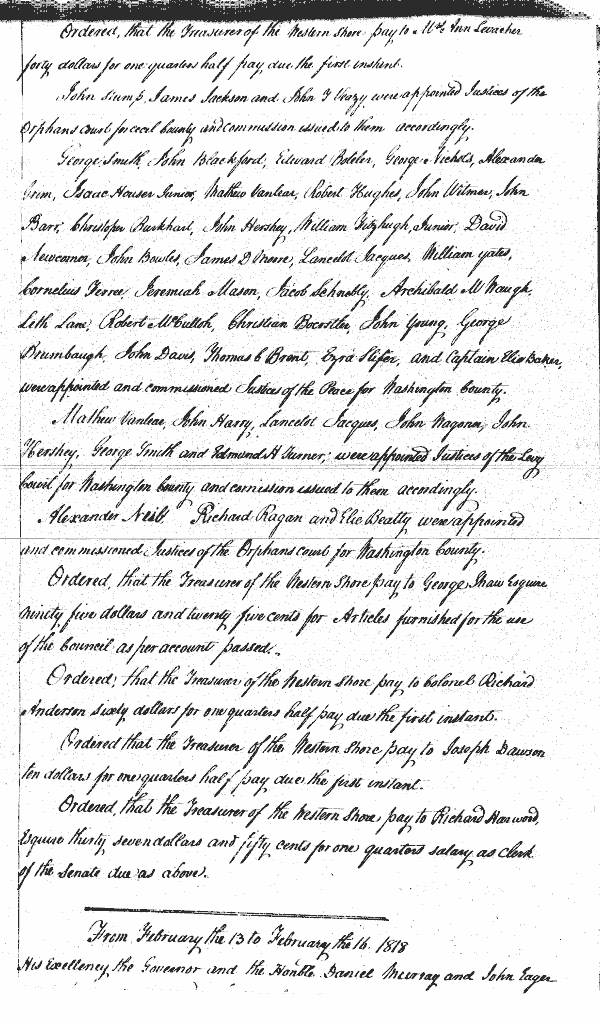 Ordered, that the Treasurer of the Western Shore pay to Mrs. Ann Levacher
forty dollars for one quarters half pay due the first instant.
John Stump, James Jackson and John T Veazy were appointed Justices of the
Orphans court for cecil County and commission issued to them accordingly.
George Smith, John Blackford, Edward Boteler, George Nichols, Alexander
Grim, Isaac Houser Junior, Mathew Vanlear, Robert Hughes, John Witmer, John
Barr, Christoper Burkhart, John Hershey, William Fitzhugh, Junior, David
Newcomer, John Bowles, James D Moore, Lancelot Jacques, William yates,
Cornelius Ferree, Jeremiah Mason, Jacob Schnebly, Archibald M Waugh,
Seth Lane, Robert McCulloh, Christian Boerstler, John Young, George
Brumbaugh, John Davis, Thomas C Brent, Ezra Slifer, and Captain Elie Baker,
were appointed and commissioned Justices of the Peace for Washington County.
Mathew Vanlear, John Harry, Lancelot Jacques, John Wagoner, John
Hershey, George Smith and Edmund H Turner, were appointed Justices of the Levy
Court for Washington County and comission issued to them accordingly.
Alexander Neill Richard Ragan and Elie Beatty were appointed
and commissioned Justices of the Orphans court for Washington County.
Ordered, that the Treasurer of the Western Shore pay to George Shaw Esquire
ninety five dollars and twenty five cents for Articles furnished for the use
of the Council as per account passed.
Ordered, that the Treasurer of the Western Shore pay to Colonel Richard
Anderson sixty dollars for one quarters half pay due the first instant.
Ordered that the Treasurer of the Western Shore pay to Joseph Dawson
ten dollars for one quarters half pay due the first instant.
Ordered, that the Treasurer of the Western Shore pay to Richard Harwood,
Esquire thirty seven dollars and fifty cents for one quarters salary as Clerk
of the Senate due as above.
From February the 13 to February the 16. 1818
His Excellency the Governor and the Honble. Daniel Murray and John Eager